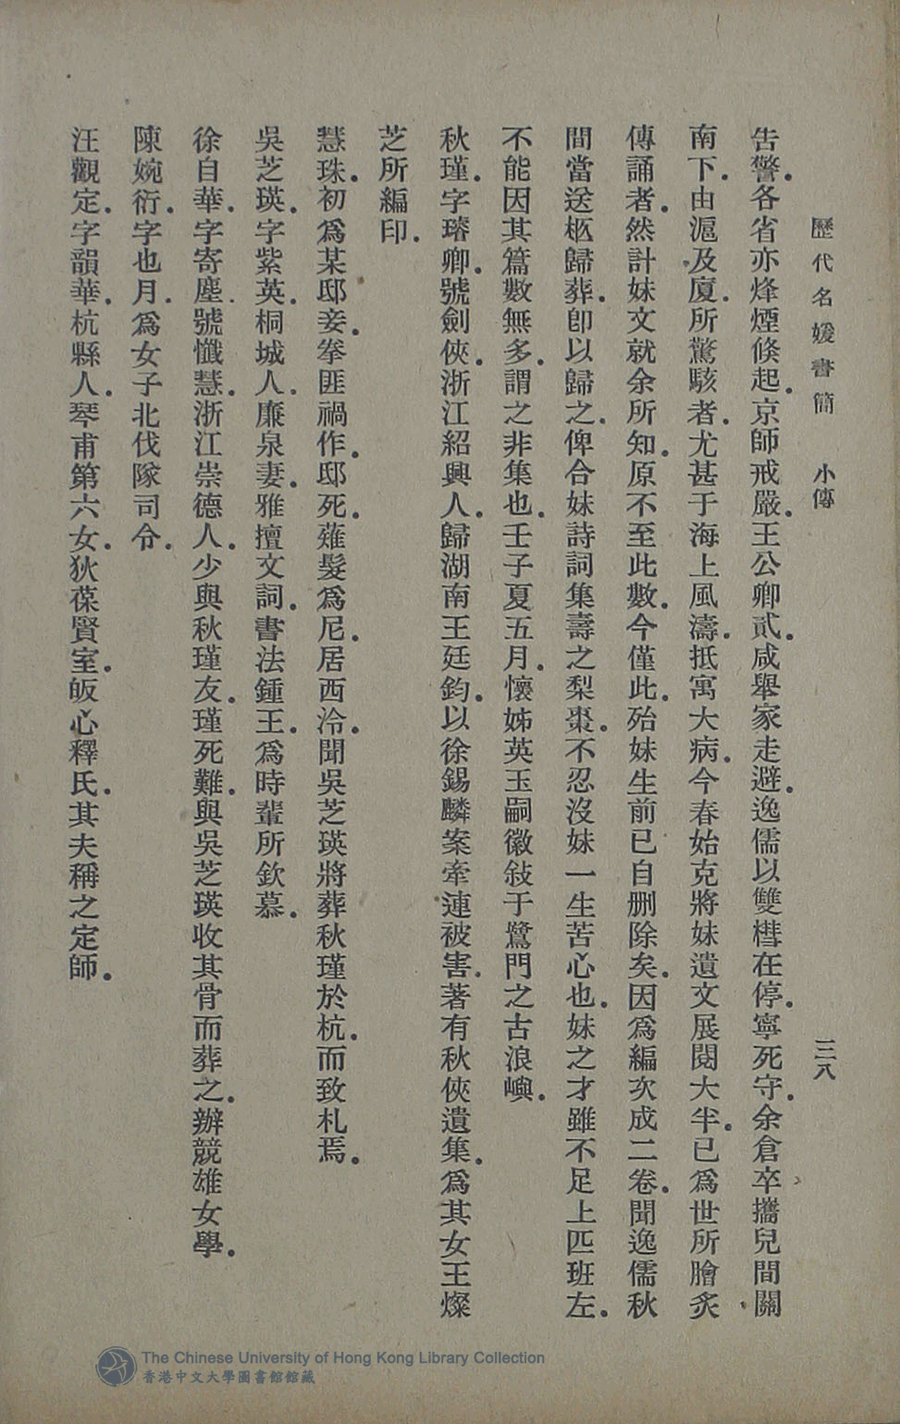 歷代名媛書簡 小傳 三八
告警.各省亦烽煙倐起.京師戒嚴.王公卿貳.咸舉家走避.逸儒以雙槥在停.寧死守.余倉卒攜兒間關
南下.由滬及廈.所驚駭者.尤甚于海上風濤.抵寓大病.今春始克將妹遺文展閱大半.已爲世所膾炙
傳誦者.然計妹文就余所知.原不至此數.今僅此.殆妹生前已自删除矣.因爲編次成二卷.聞逸儒秋
間當送柩歸葬.卽以歸之.俾合妹詩詞集壽之梨棗.不忍沒妹一生苦心也.妹之才雖不足上匹班左.
不能因其篇數無多.謂之非集也.壬子夏五月.懷姊英玉嗣徽敍于鷺門之古浪嶼.
秋瑾.字璿卿.號劍俠.浙江紹興人.歸湖南王廷鈞.以徐錫麟案牽連被害.著有秋俠遺集.爲其女王燦
芝所編印.
慧珠.初爲某邸妾.拳匪禍作.邸死.薙髮爲尼.居西泠.聞吳芝瑛將葬秋瑾於杭.而致札焉.
吳芝瑛.字紫英.桐城人.廉泉妻.雅擅文詞.書法鍾王.爲時輩所欽慕.
徐自華.字寄塵.號懺慧.浙江崇德人.少與秋瑾友.瑾死難.與吳芝瑛收其骨而葬之.辦競雄女學.
陳婉衍.字也月.爲女子北伐隊司令.
汪觀定.字韻華.杭縣人.琴甫第六女.狄葆賢室.皈心釋氏.其夫稱之定師.
The Chinese University of Hong Kong Library Collection
香港中文大學圖書館館藏